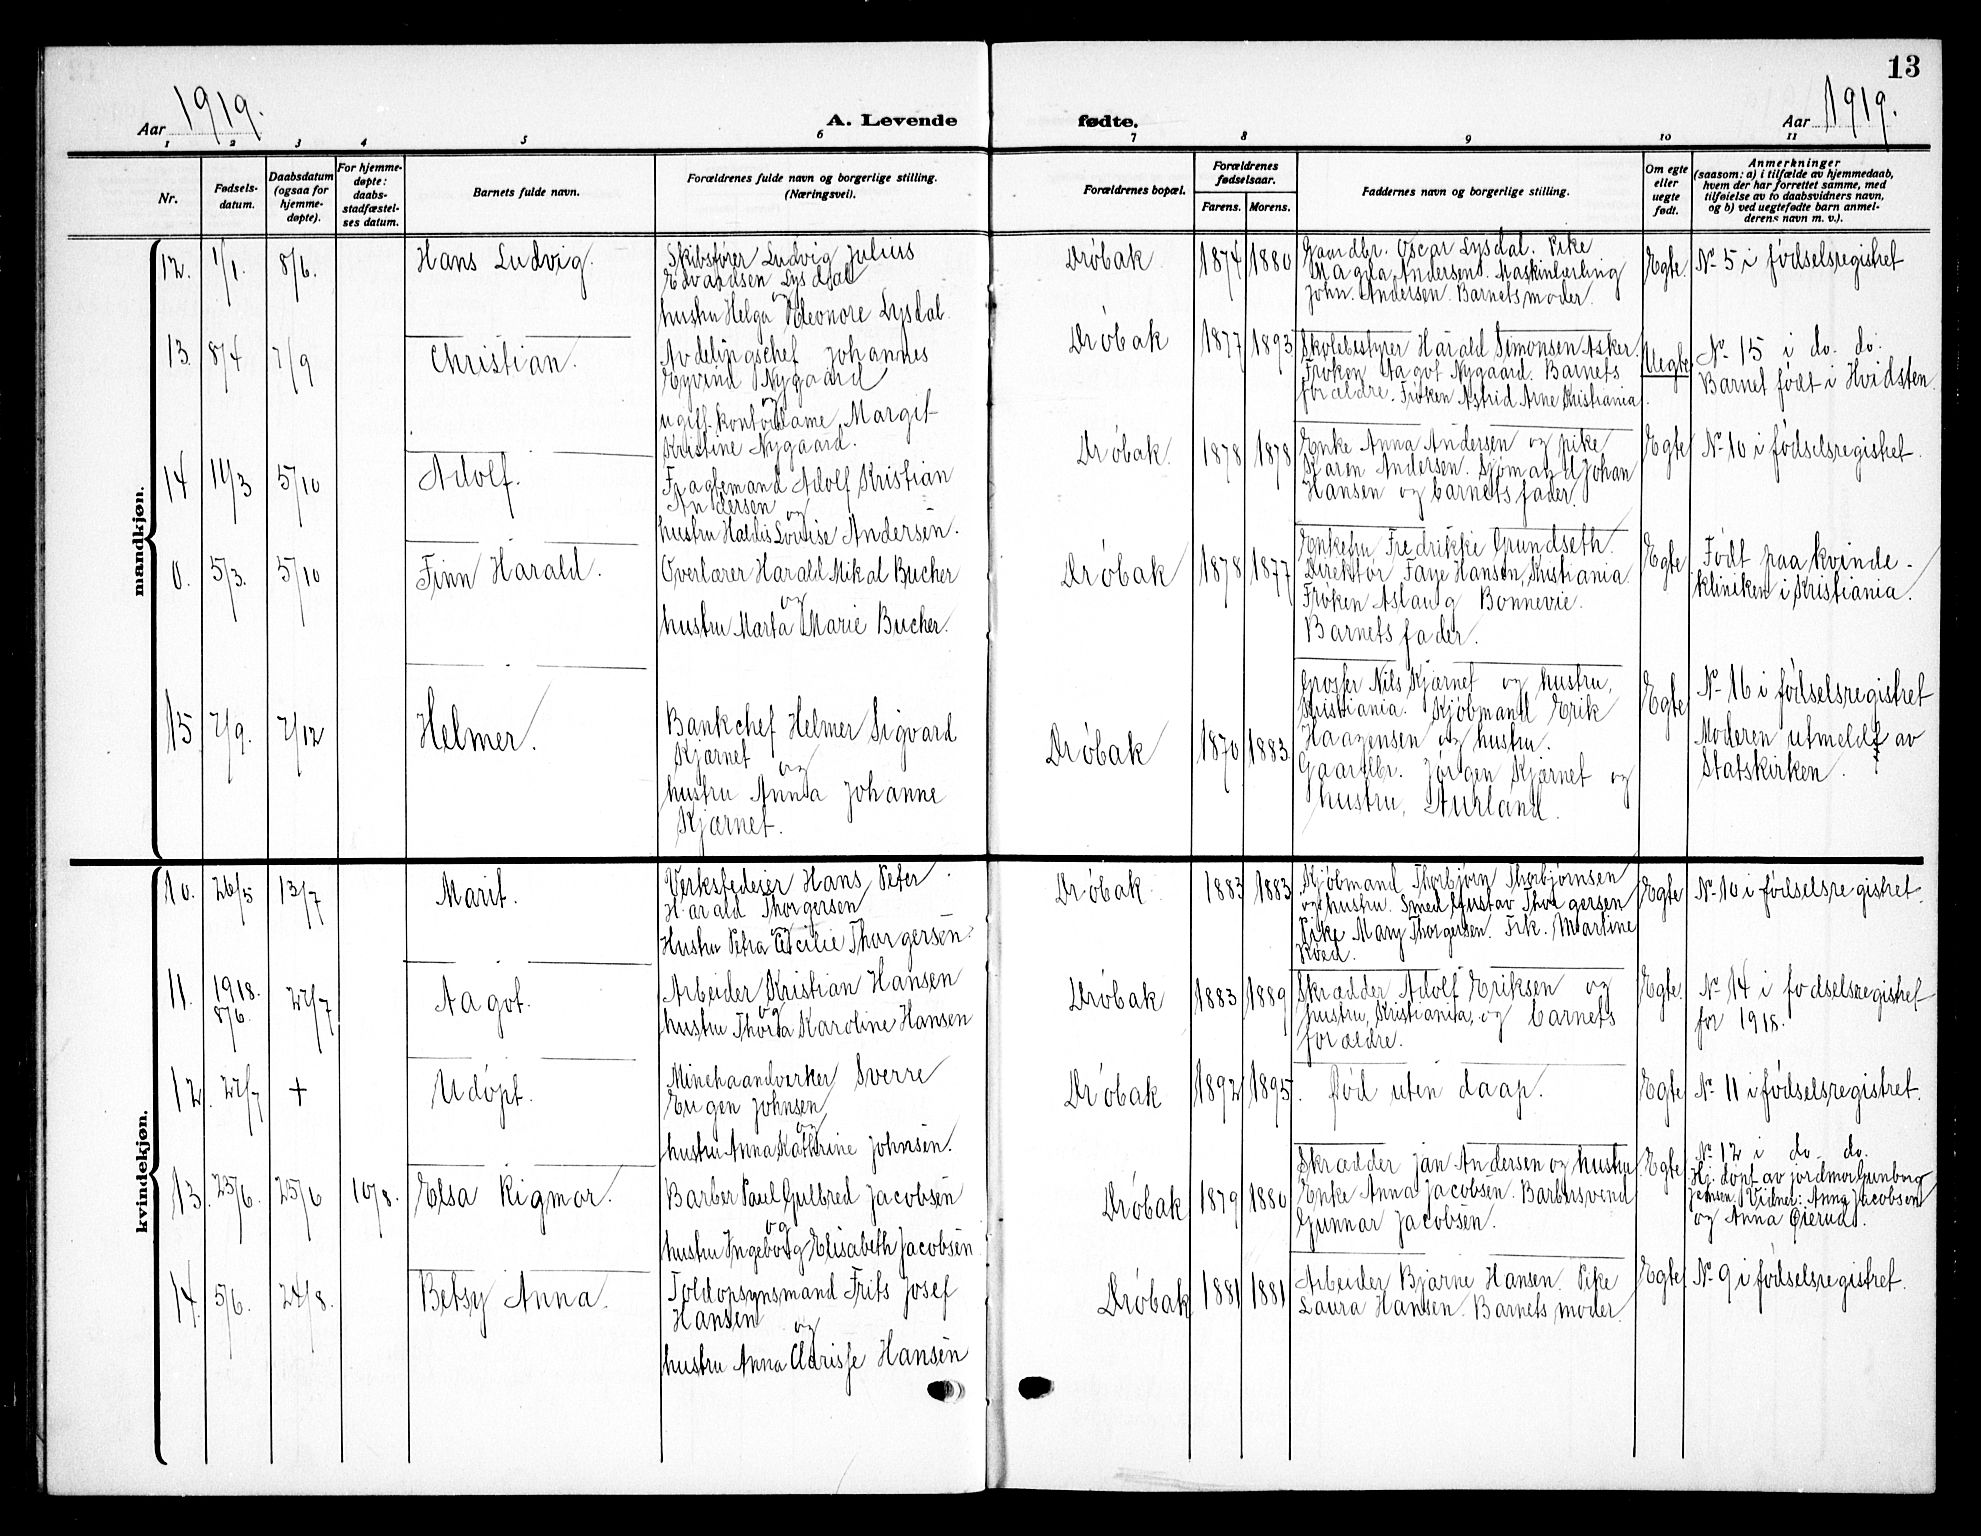 13
Aar 1919.
A. Levende fødte.
Aar 1919.
1 2 3 4 5 6 7 8 9 10 11
Nr.
Fødsels-
datum.
Daabsdatum
(ogsaa for
hjemme-
døpte).
For hjemme-
døpte:
daabs-
stadfæstel-
ses datum.
Barnets fulde navn.
Forældrenes fulde navn og borgerlige stilling.
(Næringsvei).
Forældrenes bopæl.
Forældrenes
fødselsaar.
Farens. Morens.
Faddernes navn og borgerlige stilling.
Om egte
eller
uegte
født.
Anmerkninger
(saasom: a) i tilfælde av hjemmedaab,
hvem der har forrettet samme, med
tilføielse av to daabsvidners navn,
og b) ved uegtefødte barn anmel-
derens navn m. v.).
mandkjøn.
12. 1/1. 8/6. Hans Ludvig.
Skibsfører Ludvig Julius
Edvardsen Lysdal
og
hustru Helga Eleonore Lysdal.
Drøbak 1874 1880
Gaardbr. Oscar Lysdal. Pike
Magda Andersen. Maskinlærling
John. Andersen. Barnets moder.
Egte.
No 5 i fødselsregistret
13. 8/4 7/9 Christian.
Avdelingschef Johannes
Eyvind Nygaard
og
ugift kontordame Margit
Kristine Nygaard.
Drøbak 1877 1893
Skolebestyrer Harald Simonsen Asker.
Frøken Aagot Nygaard. Barnets
forældre. Frøken Astrid Arne Kristiania.
Uegte
No 15 i do. do.
Barnet født i Hvidsten.
14 11/3 5/10 Adolf.
Fragtemand Adolf Kristian
Andersen
og
hustru Haldis Louise Andersen.
Drøbak. 1878 1878
Enke Anna Andersen og pike
Karen Andersen. Sjømand Johan
Hansen og barnets fader.
Egte
No 10 i fødselsregistret.
0. 5/3. 5/10 Finn Harald.
Overlærer Harald Mikal Bucher
og
hustru Marta Marie Bucher.
Drøbak 1878 1877
Enkefru Fredrikke Grundseth.
Direktør Faye Hansen, Kristiania
Frøken Aslaug Bonnevie.
Barnets fader.
Egte
Født paa kvinde-
kliniken i Kristiania.
15 7/9. 7/12 Helmer.
Bankchef Helmer Sigvard
Kjærnet
og
hustru Anna Johanne
Kjærnet.
Drøbak 1870 1883.
Grosser Nils Kjærnet og hustru,
Kristiania. Kjøbmand Erik
Haagensen og hustru.
Gaardbr. Jørgen Kjærnet og
hustru, Aurland.
Egte
No 16 i fødselsregistret
Moderen utmeldt av
Statskirken.
kvindekjøn.
10. 26/5 13/7 Marit.
Verkstedeier Hans Peter
Harald Thorgersen
og
Hustru Petra Cecilie Thorgersen.
Drøbak. 1883 1883
Kjøbmand Thorbjørn Thorbjørnsen
og hustru. Smed Gustav Thorgersen
Pike Mary Thorgersen. Frk. Martine
Køed.
Egte
No 10 i fødselsregistret.
11. 1918. 8/6. 27/7 Aagot.
Arbeider Kristian Hansen
og
hustru Thora Karoline Hansen
Drøbak 1883 1889
Skrædder Adolf Eriksen og
hustru, Kristiania, og barnets
forældre.
Egte.
No 14 i fødselsregistret
for 1918.
12. 27/7 + Udøpt.
Minehaandverker Sverre
Eugen Johnsen
og
hustru Anna Kathrine Johnsen.
Drøbak 1892 1895.
Død uten daap.
Egte
No 11 i fødselsregistret.
13. 25/6. 25/6 10/8. Elsa Rigmor.
Barber Paul Gulbred Jacobsen
og
hustru Ingeborg Elisabeth Jacobsen
Drøbak 1879 1880
Skrædder Jan Andersen og hustru
Enke Anna Jacobsen. Barbersvend
Gunnar Jacobsen.
Egte
No 12 i do. do.
Hj. døpt av jordmor Gunborg
Jensen. Vidner: Anna Jacobsen
og Anna Øierud.
14. 5/6. 24/8. Betsy Anna.
Toldopsynsmand Frits Josef
Hansen
og
hustru Anna Clarisse Hansen
Drøbak 1881 1881
Arbeider Bjarne Hansen. Pike
Laura Hansen. Barnets moder.
Egte
No 9 i fødselsregistret.